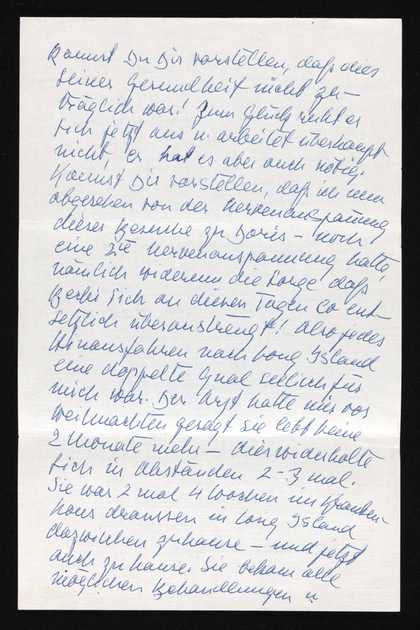 Kannst Du Dir vorstellen, dass dies
seiner Gesundheit nicht zu-
träglich war! Zum Glück ruht er
sich jetzt aus u. arbeitet überhaupt
nicht, er hat es aber auch nötig.
Kannst Dir vorstellen, dass ich nun
abgesehen von der Nervenanspannung
dieser Besuche zu Doris – noch
eine 2te Nervenanspannung hatte,
nämlich wiederum die Sorge dass
sich an diesen Tagen so ent-
setzlich überanstrengt! Also jedes
Hinausfahren nach Long Island
eine doppelte Qual seelisch für
mich war. Der Arzt hatte mir vor
Weihnachten gesagt sie lebt keine
2 Monate mehr – dies wiederholte
sich in Abständen 2–3 mal.
Sie war 2 mal 4 Wochen im Kranken-
haus draussen in Long Island
dazwischen zuhause – und jetzt
auch zuhause. Sie bekam alle
möglichen Behandlungen u